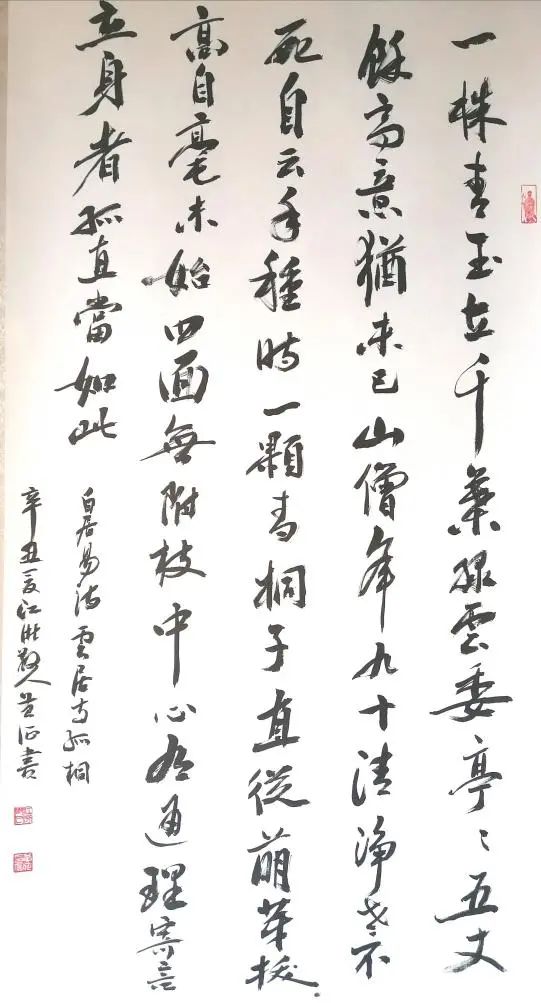 一株青玉立千葉綠雲委亭〻五丈
餘高意猶未已山僧年九十清淨老不
死自云手種時一顆青桐子直從萌芽拔
高自毫末始四面無附枝中心有通理寄言
立身者孤直當如此
白居易詩雲居寺孤桐
辛丑夏江散人書